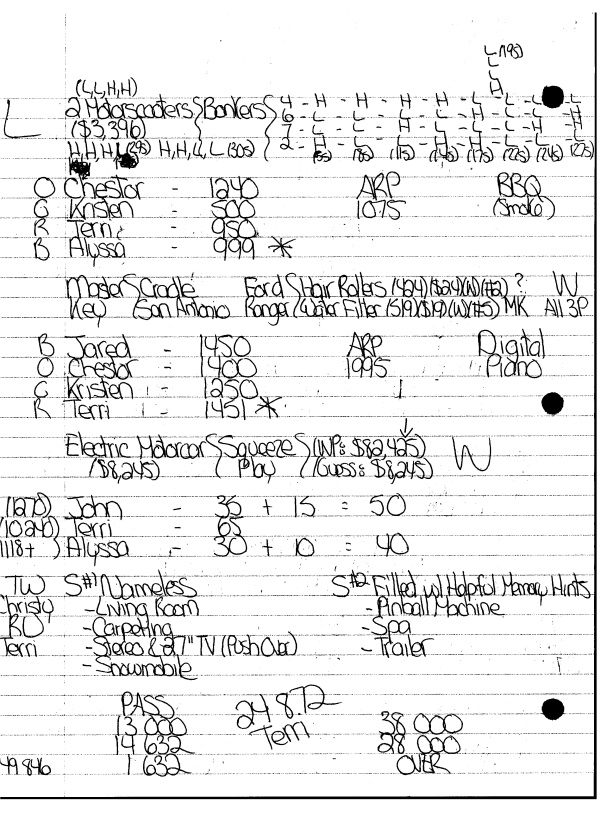 L (19s)
L
L
(L,L,H,H) H
L 2 Motorscooters Bonkers 4 - H - H - H - H - L - L - L - L
($3,396) 6 - L - L - L - L - L - L - L - H
7 - L - L - L - L - L - L - H - L
H,H,H, (29s) H,H,L,L (30s) 2 - H (5s) L (8s) L (11s) (14s) (17s) (22s) (24s) (27s)
O Chestor - 1240 ARP BBQ
G Kristen - 500 1075 (Smoke)
R Terri - 950
B Alyssa - 999 *
Master Cradle Ford Hair Rollers (424)($24)(W)(#2) ? W
Key San Antonio Ranger Water Filter (519)($19)(W)(#5) MK All 3P
B Jared - 1450 ARP Digital
O Chestor - 1400 1995 Piano
G Kristen - 1250
R Terri - 1451 *
Electric Motorcar Squeeze (WP: $82,425) W
($8,245) Play (Guess: $8,245)
(1270) John - 35 + 15 = 50
(10240) Terri - 65
(1118+ ) Alyssa - 30 + 10 = 40
TW S#1 Nameless S#2 Filled w/ Helpful Memory Hints
Christy - Living Room - Pinball Machine
RO - Carpeting - Spa
Terri - Stereo & 27" TV (Push Over) - Trailer
- Snowmobile
PASS 24 872 38 000
13 000 Terri 28 000
14 632 OVER
49 846 1 632